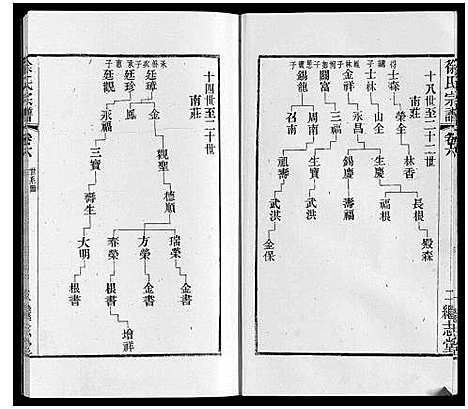 徐氏宗譜
卷六
二
繼志堂
十八世至二十二世
南莊
得子 士森 榮全 林香 長根 毀森
士林 山全 生慶 福根
金祥 永昌 錫慶 壽福
關富 三福 生寶 武洪
錫龍 周南 祖壽 武洪 金保
召南
十四世至二十世
南莊
廷璋 金 觀聖 德順 瑞榮 金書
方榮 金書
春榮 根書 增祥
廷珍 鳳
廷觀 永福 三寶 壽生 大明 根書
徐氏宗譜
卷六
世系圖